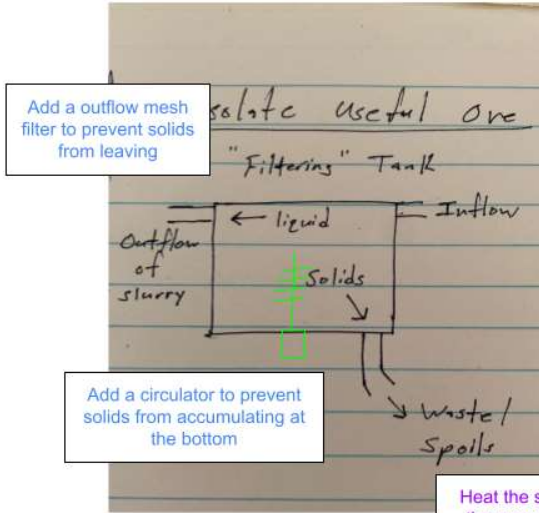 Add a outflow mesh
filter to prevent solids
from leaving
solate Useful Ore
"Filtering" Tank
← liquid
Inflow
Outflow
of
slurry
Solids
Add a circulator to prevent
solids from accumulating at
the bottom
Waste/
Spoils
Heat the s